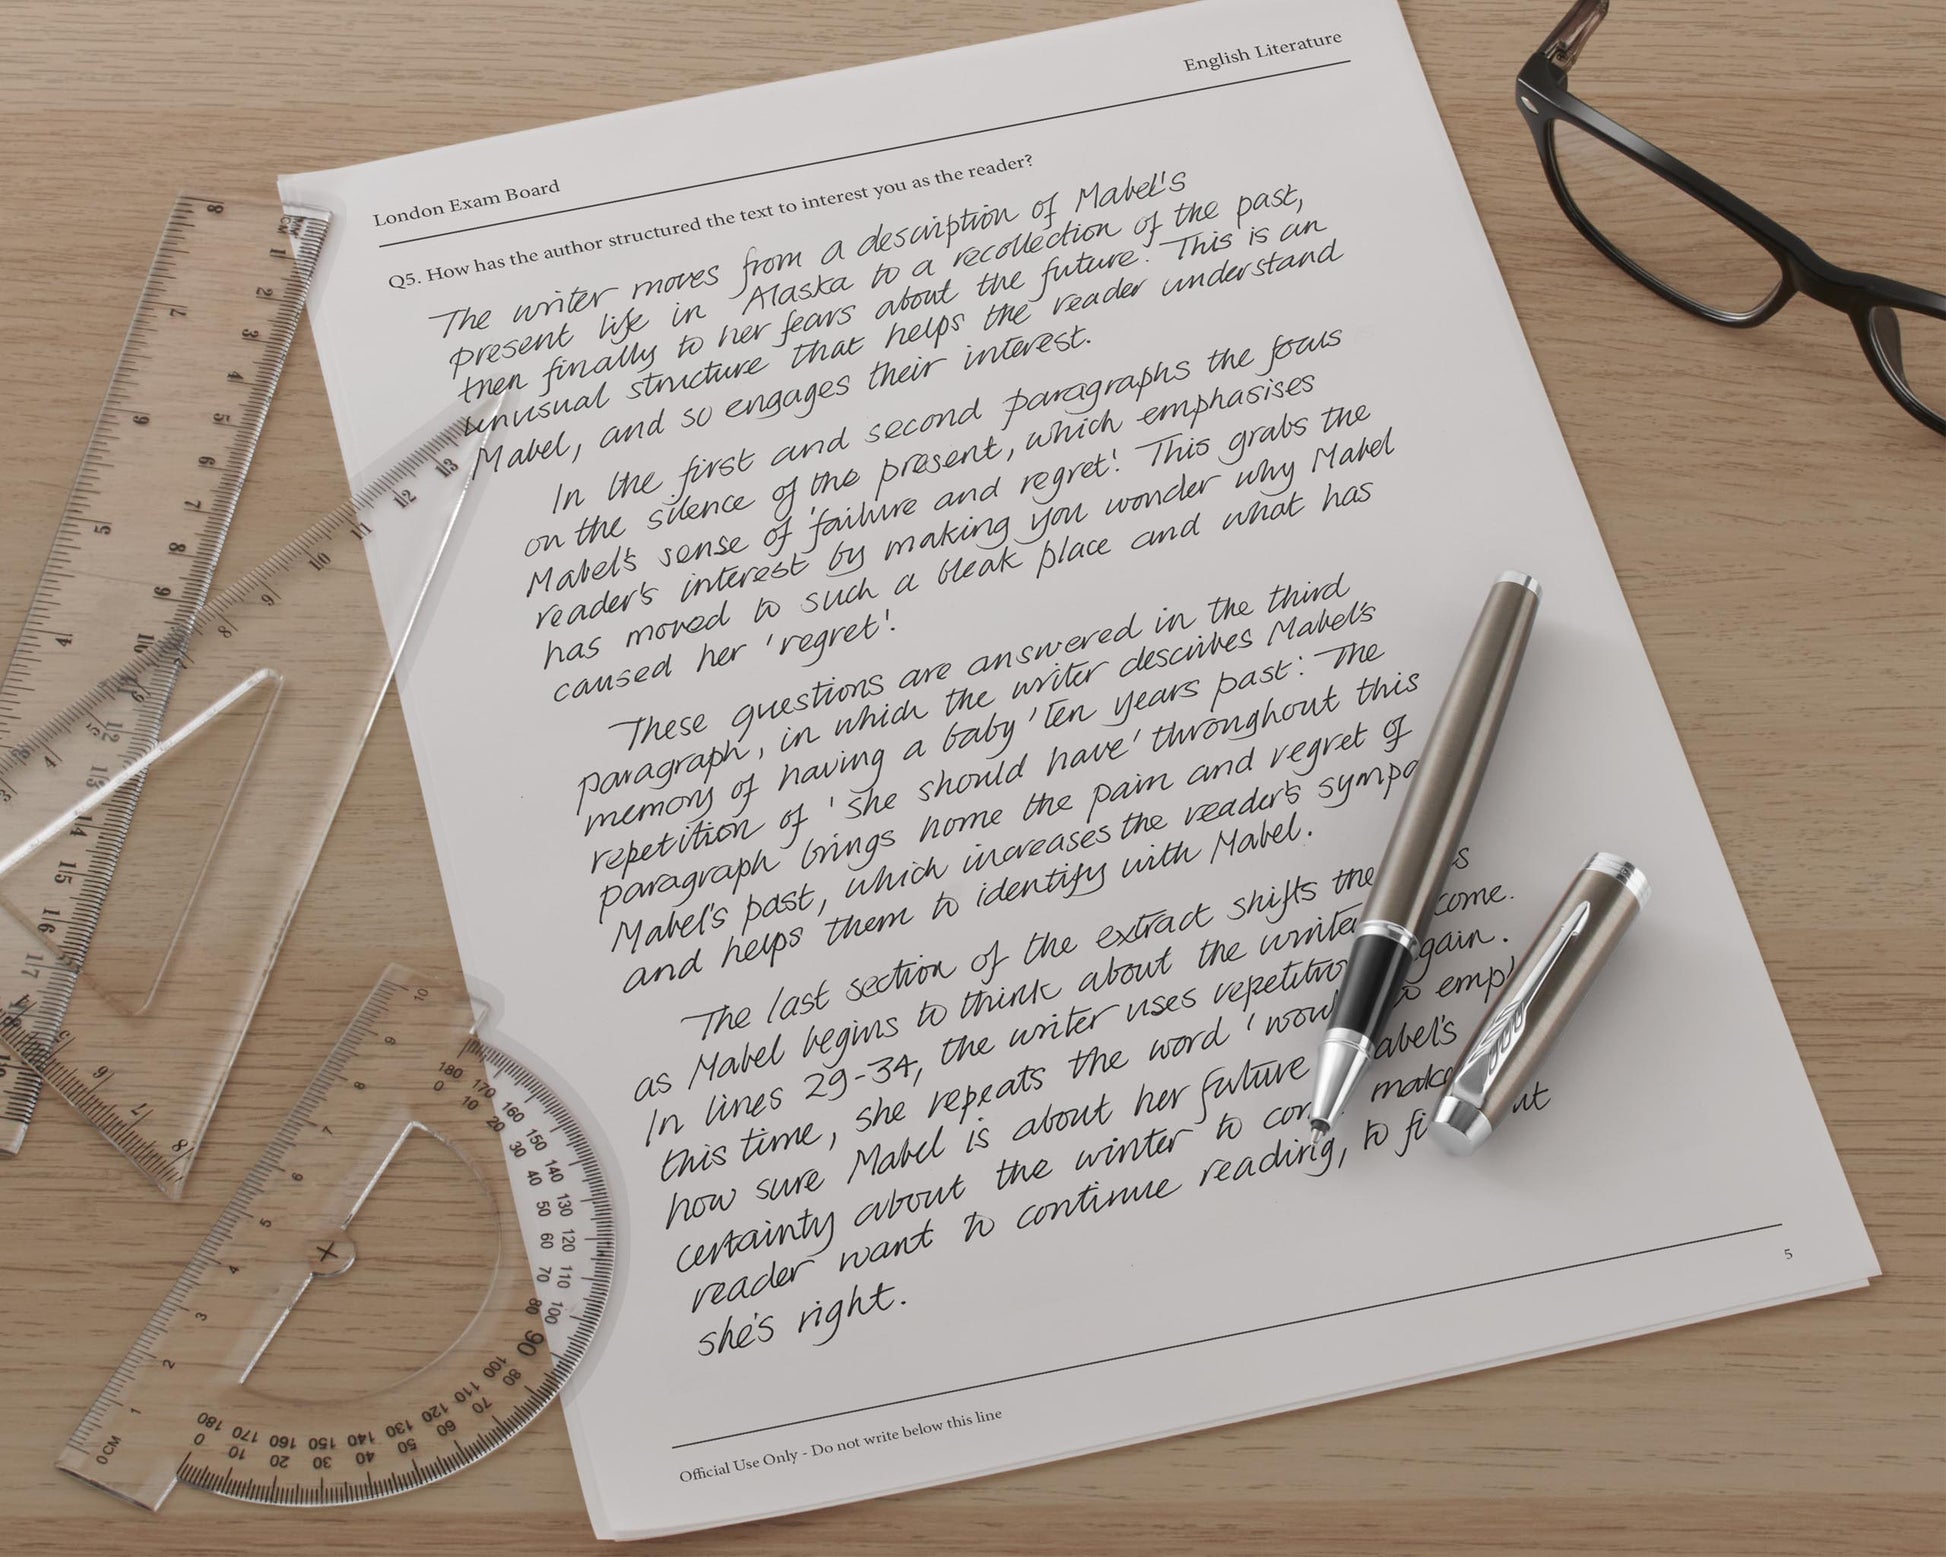 English Literature
London Exam Board
Q5. How has the author structured the text to interest you as the reader?
The writer moves from a description of Mabel's
present life in Alaska to a recollection of the past,
then finally to her fears about the future. This is an
unusual structure that helps the reader understand
Mabel, and so engages their interest.
In the first and second paragraphs the focus
on the silence of the present, which emphasises
Mabel's sense of 'failure and regret'. This grabs the
reader's interest by making you wonder why Mabel
has moved to such a bleak place and what has
caused her 'regret'.
These questions are answered in the third
paragraph, in which the writer describes Mabel's
memory of having a baby 'ten years past'. The
repetition of 'she should have' throughout this
paragraph brings home the pain and regret of
Mabel's past, which increases the reader's
and helps them to identify with Mabel.
The last section of the extract shifts the
as Mabel begins to think about the winter come.
In lines 29-34, the writer uses repetition again.
this time, she repeats the word
how sure Mabel is about her future Mabel's
certainty about the winter to
reader want to continue reading, to
she's right.
5
Official Use Only - Do not write below this line